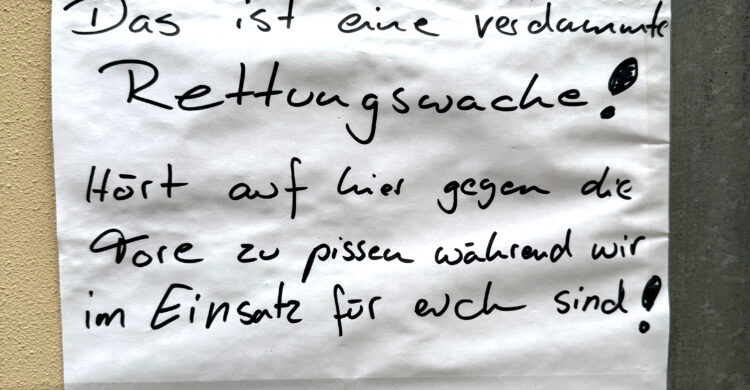 Das ist eine verdammte
Rettungswache!
Hört auf hier gegen die
Tore zu pissen während wir
im Einsatz für euch sind!